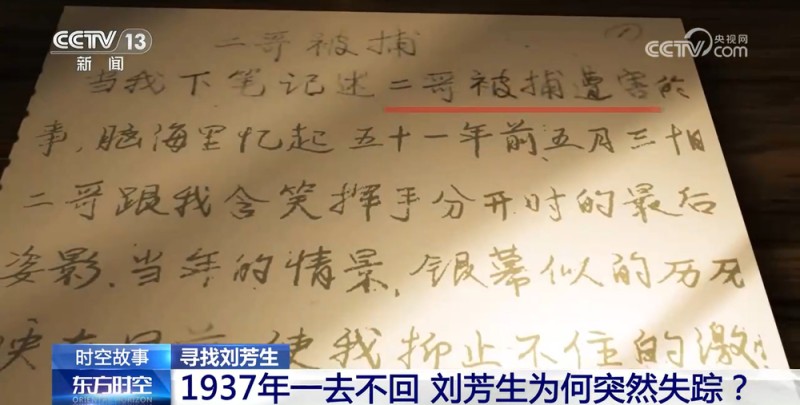 CCTV 13
新闻
央视网
CCTV.com
二哥被捕
(1)
当我下笔记述二哥被捕遭害的
事,脑海里忆起五十一年前五月三十日
二哥跟我含笑挥手分开时的最后
姿影.当年的情景,银幕似的历历
映在目前 使我抑止不住的激
时空故事
寻找刘芳生
东方时空
1937年一去不回 刘芳生为何突然失踪?